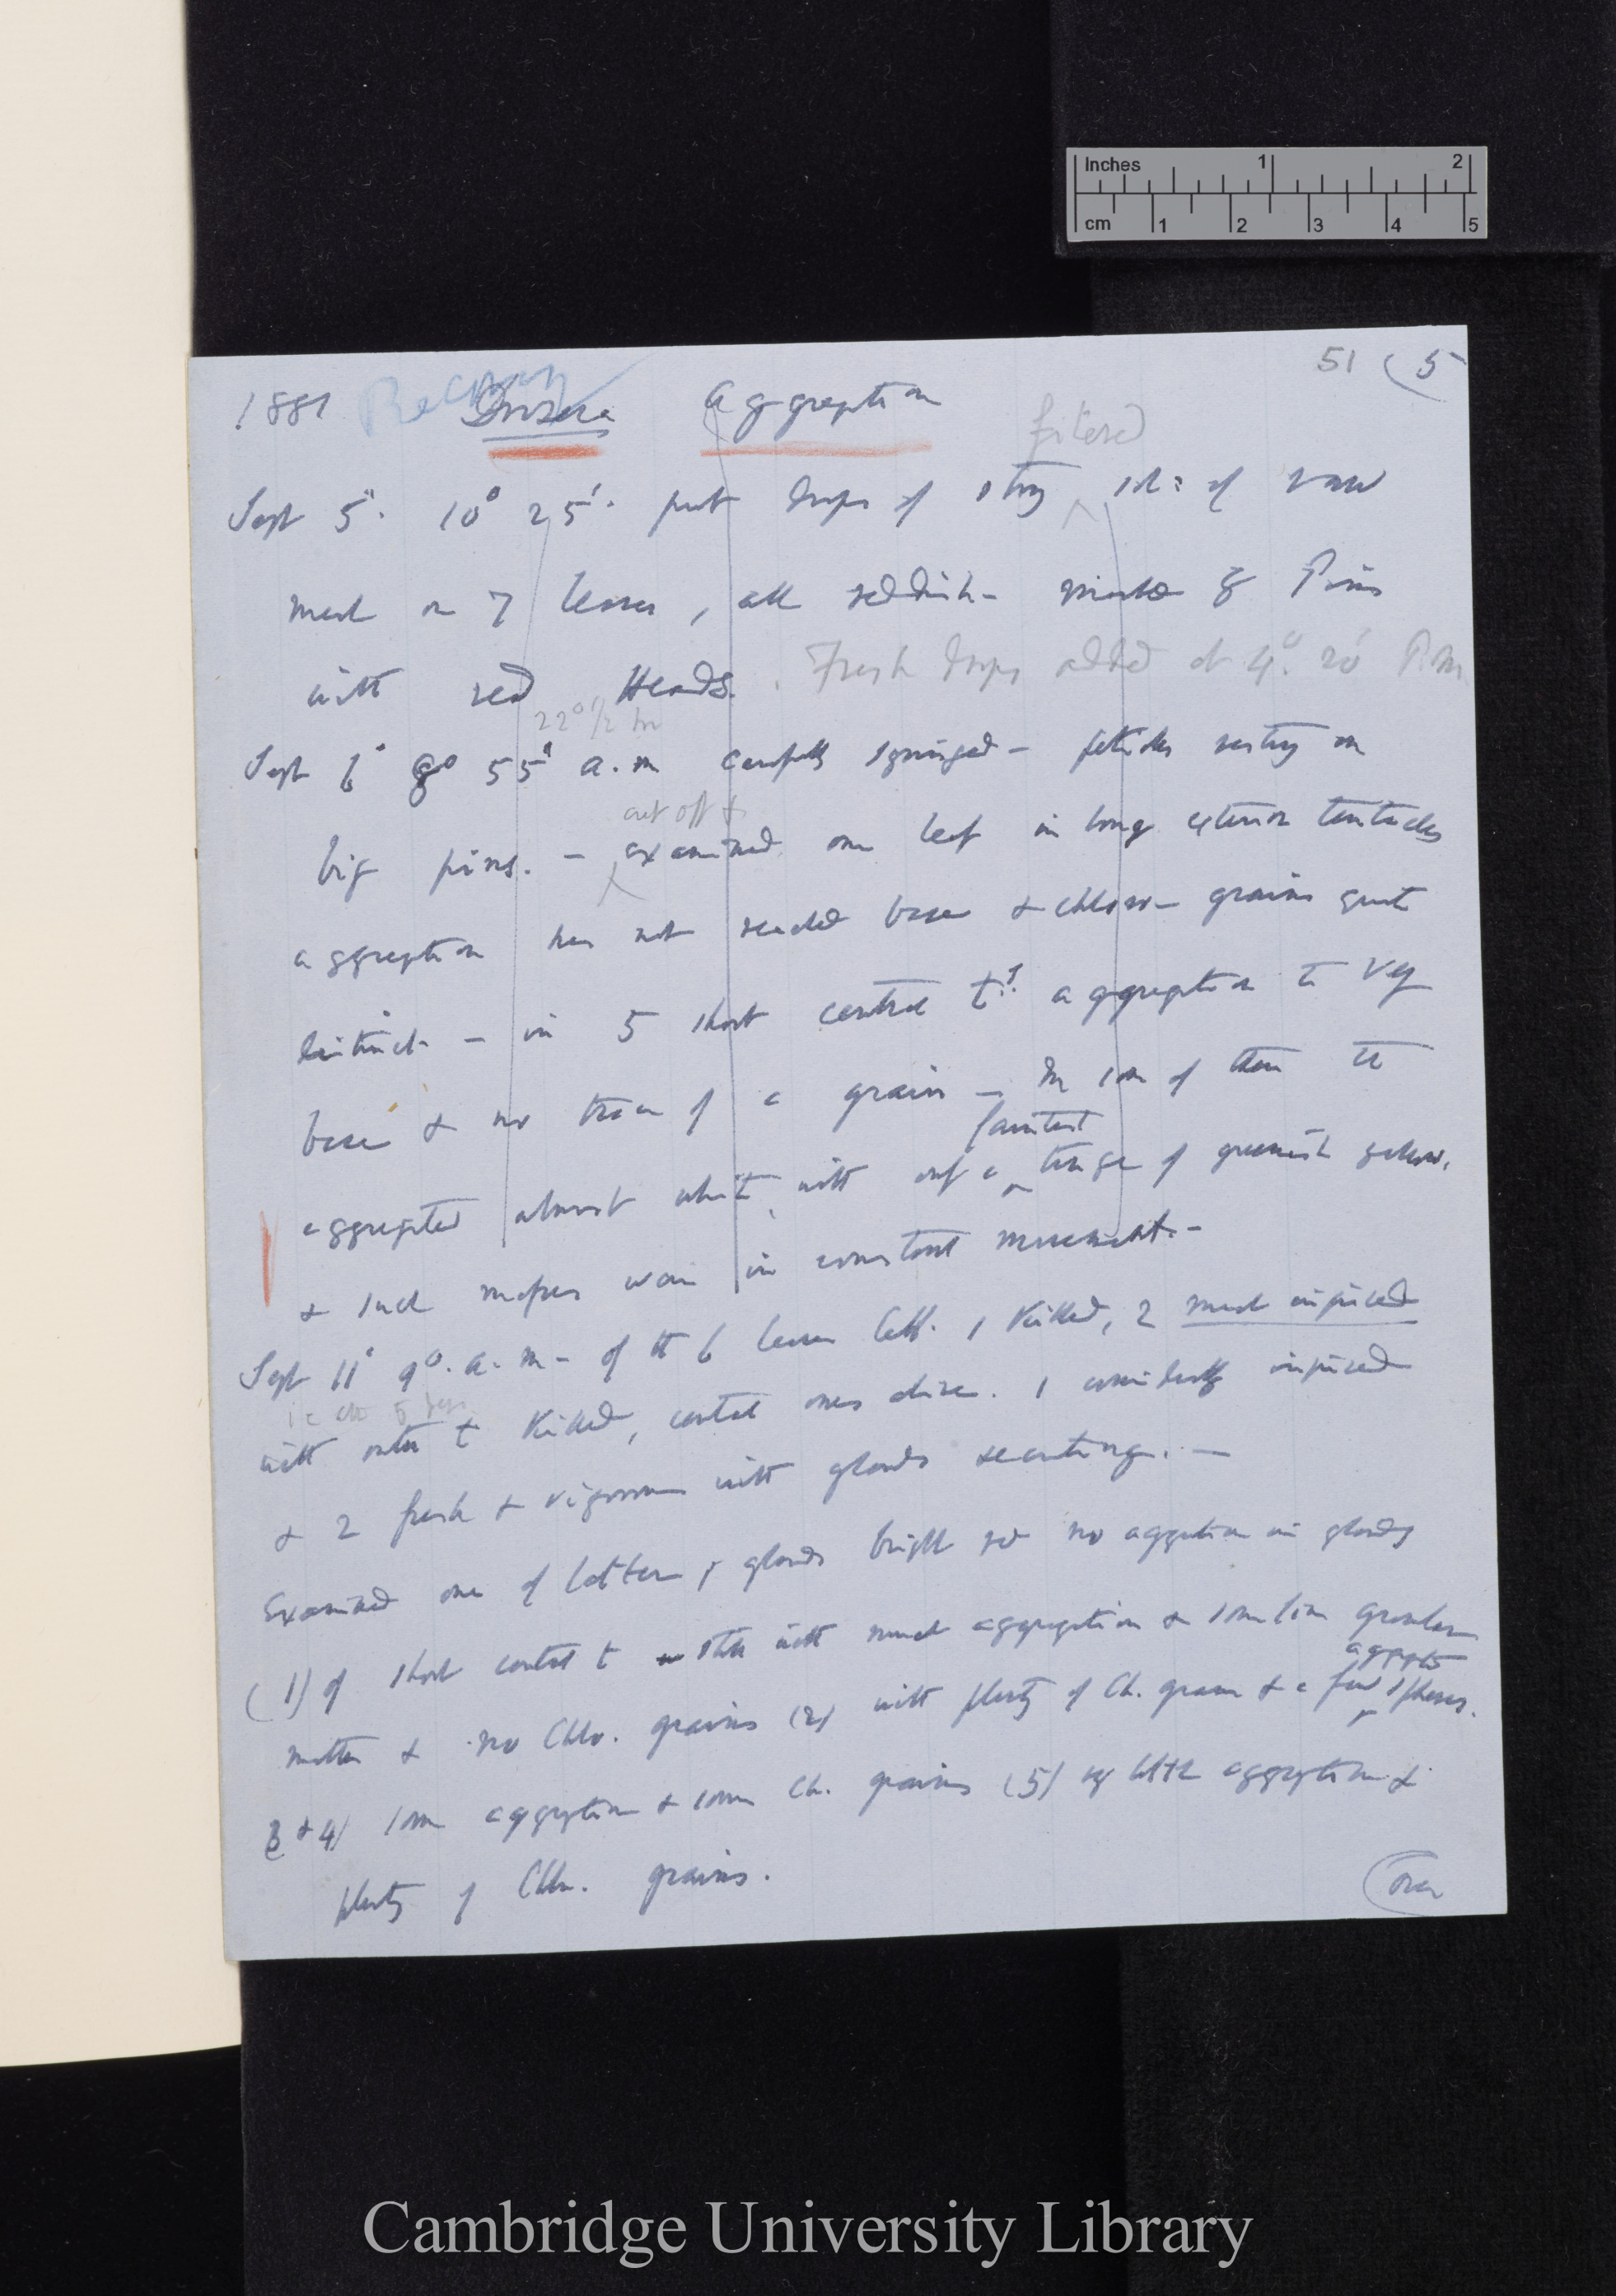 Inches 1 2
cm 1 2 3 4 5
51 (5
1881 Drosera aggregation
filtered
Sept 5° 10° 25' put drops of strong sol: of raw
meat on 7 leaves, all reddish - marked by Pins
with red Heads. Fresh drops added at 4° 20' P.m.
22° 1/2 hr
Sept 6° 8° 55' a.m carefully syringed - petioles resting on
cut off &
big pins. - examined one leaf in long exterior tentacles
aggregation has not reached base & chloro- grains quite
distinct - in 5 short central t.s aggregation to very
base & no trace of a grain - In some of them the
faintest
aggregated almost white, with only a tinge of greenish yellow,
& such masses were in constant movement. -
Sept 11° 9° a.m - of the 6 leaves left. 1 Killed, 2 much injured
ie after 5 days
with outer t Killed, central ones alive. 1 considerably injured
& 2 fresh & vigorous with glands secreting. -
Examined one of latter, glands bright red no aggretion in glands
(1) of short central t with much aggregation & some granular
aggregated
matter & no Chlo. grains (2) with plenty of Ch. grains & a few spheres.
3 & 4) some aggregation & some Ch. grains (5) very little aggregation &
plenty of Chlo. grains.
(over
Cambridge University Library